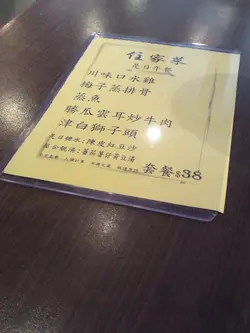 住家菜
是日午餐
川味口水雞
梅子蒸排骨
蒸魚
勝瓜雲耳炒牛肉
津白獅子頭
是日糖水：陳皮紅豆沙
足金靚湯：蕃茄薯仔黃豆湯
套餐$38